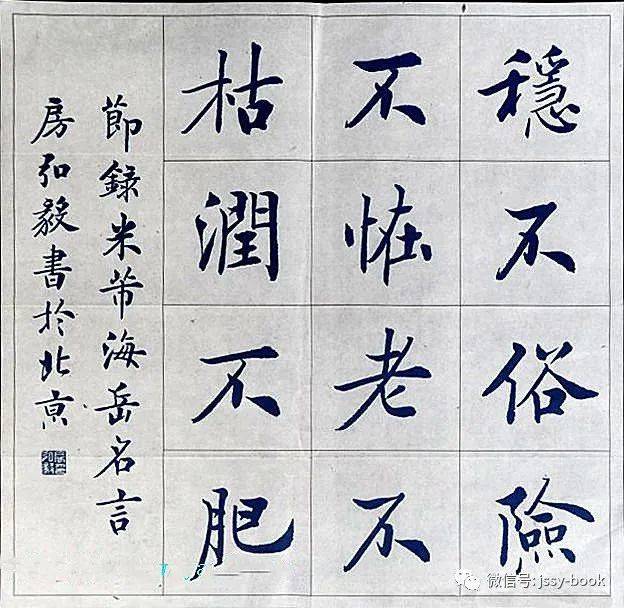 穩不俗險
不恠老不
枯潤不肥
節錄米芾海岳名言
房弘毅書於北京
微信号: jssy-book